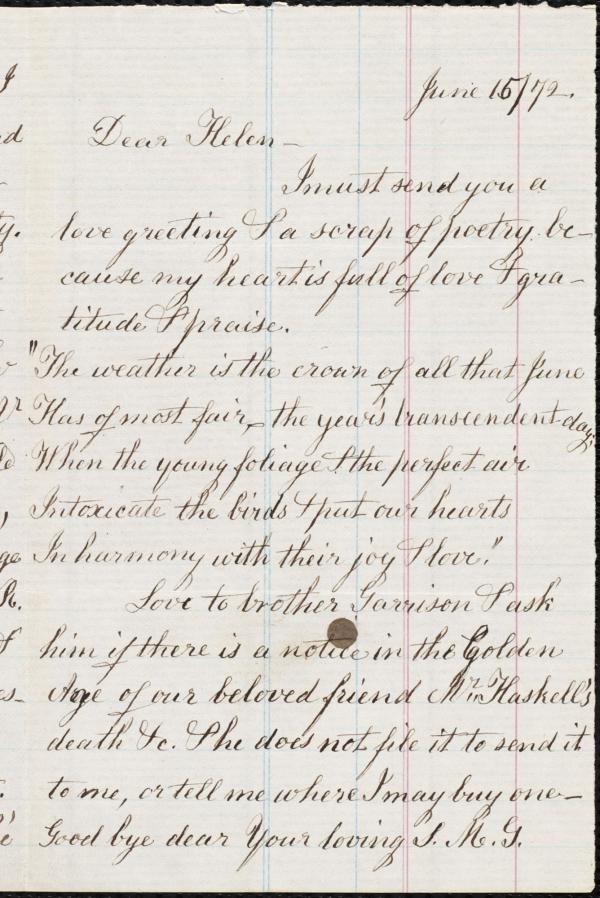 June 15/72.
Dear Helen—
I must send you a
love greeting & a scrap of poetry be-
cause my heart is full of love & gra-
titude & praise.
"The weather is the crown of all that June
Has of most fair,— the year's transcendent day,
When the young foliage & the perfect air
Intoxicate the birds & put our hearts
In harmony with their joy & love."
Love to brother Garrison & ask
him if there is a notice in the Golden
Age of our beloved friend Mr. Haskell's
death &c. & he does not file it to send it
to me, or tell me where I may buy one—
Good bye dear Your loving S. M. G.